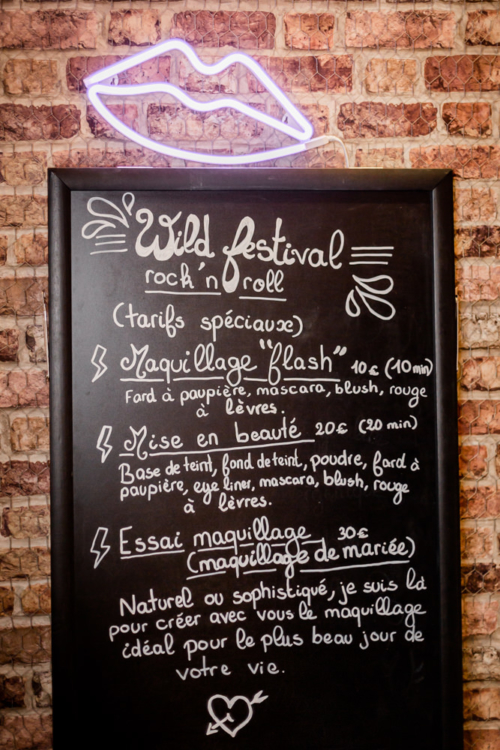 Wild festival
rock'n roll
(tarifs spéciaux)
Maquillage "flash" 10€ (10min)
Fard à paupière, mascara, blush, rouge
à lèvres.
Mise en beauté 20€ (20 min)
Base de teint, fond de teint, poudre, fard à
paupière, eye liner, mascara, blush, rouge
à lèvres.
Essai maquillage 30€
(maquillage de mariée)
Naturel ou sophistiqué, je suis là
pour créer avec vous le maquillage
idéal pour le plus beau jour de
votre vie.